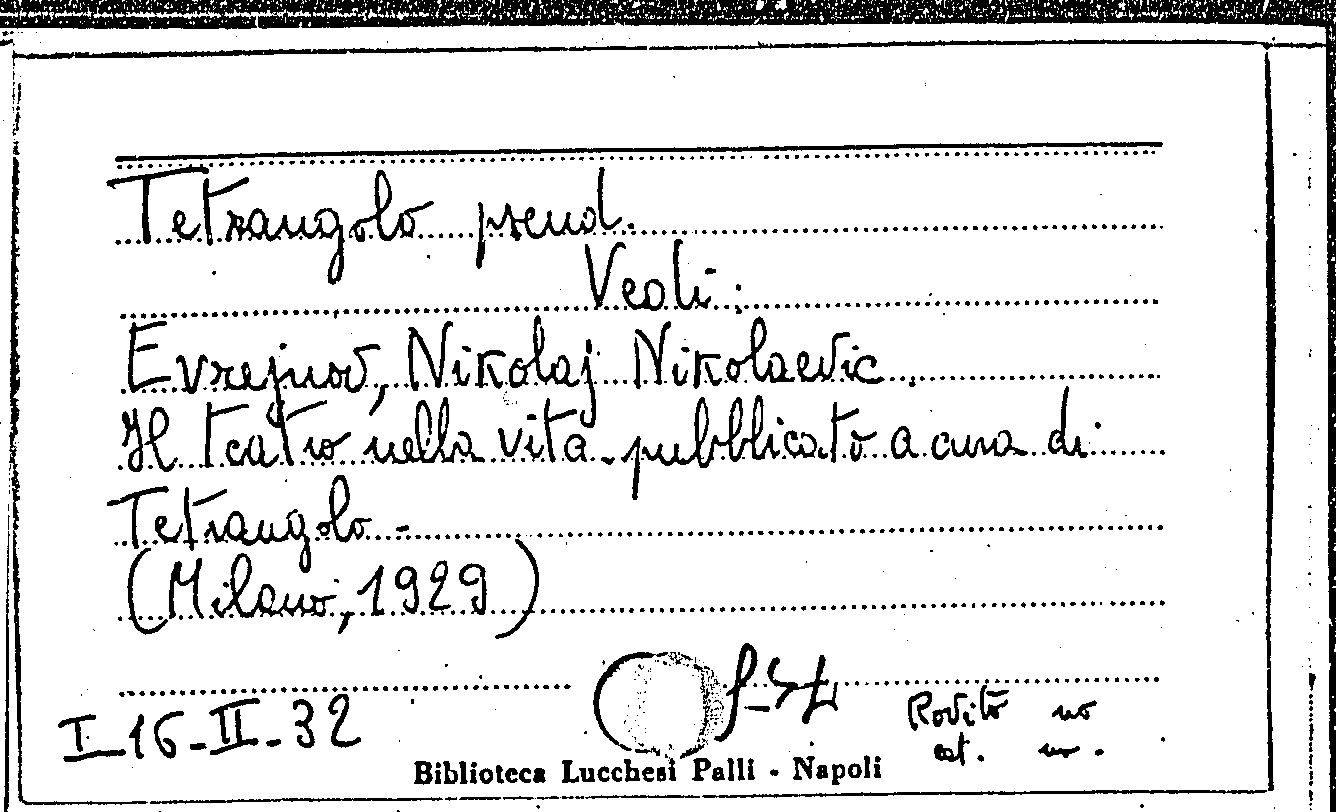 Tetrangolo pseud.
Vedi:
Evrejnov, Nikolaj Nikolaevic.
Il teatro nella vita - pubblicato a cura di
Tetrangolo -
(Milano, 1929)
I-16-II-32
Rovito no
cat. no.
Biblioteca Lucchesi Palli - Napoli